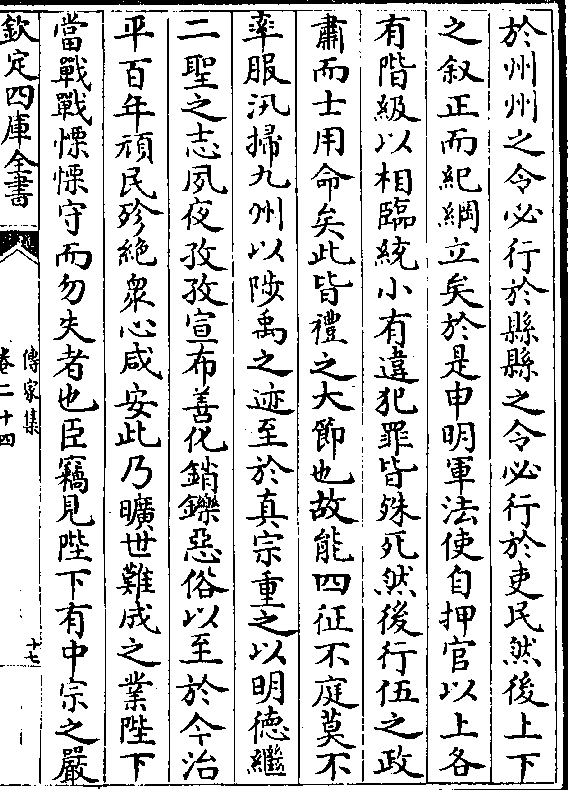 於州州之令必行於縣縣之令必行於吏民然後上下
之叙正而紀綱立矣於是申明軍法使自押官以上各
有階級以相臨統小有違犯罪皆殊死然後行伍之政
肅而士用命矣此皆禮之大節也故能四征不庭莫不
率服汛掃九州以陟禹之迹至於真宗重之以明徳繼
二聖之志夙夜孜孜宣布善化銷鑠惡俗以至於今治
平百年頑民殄絶衆心咸安此乃曠世難成之業陛下
當戰戰慄慄守而勿失者也臣竊見陛下有中宗之嚴
欽定四庫全書
傳家集
卷二十四
十七